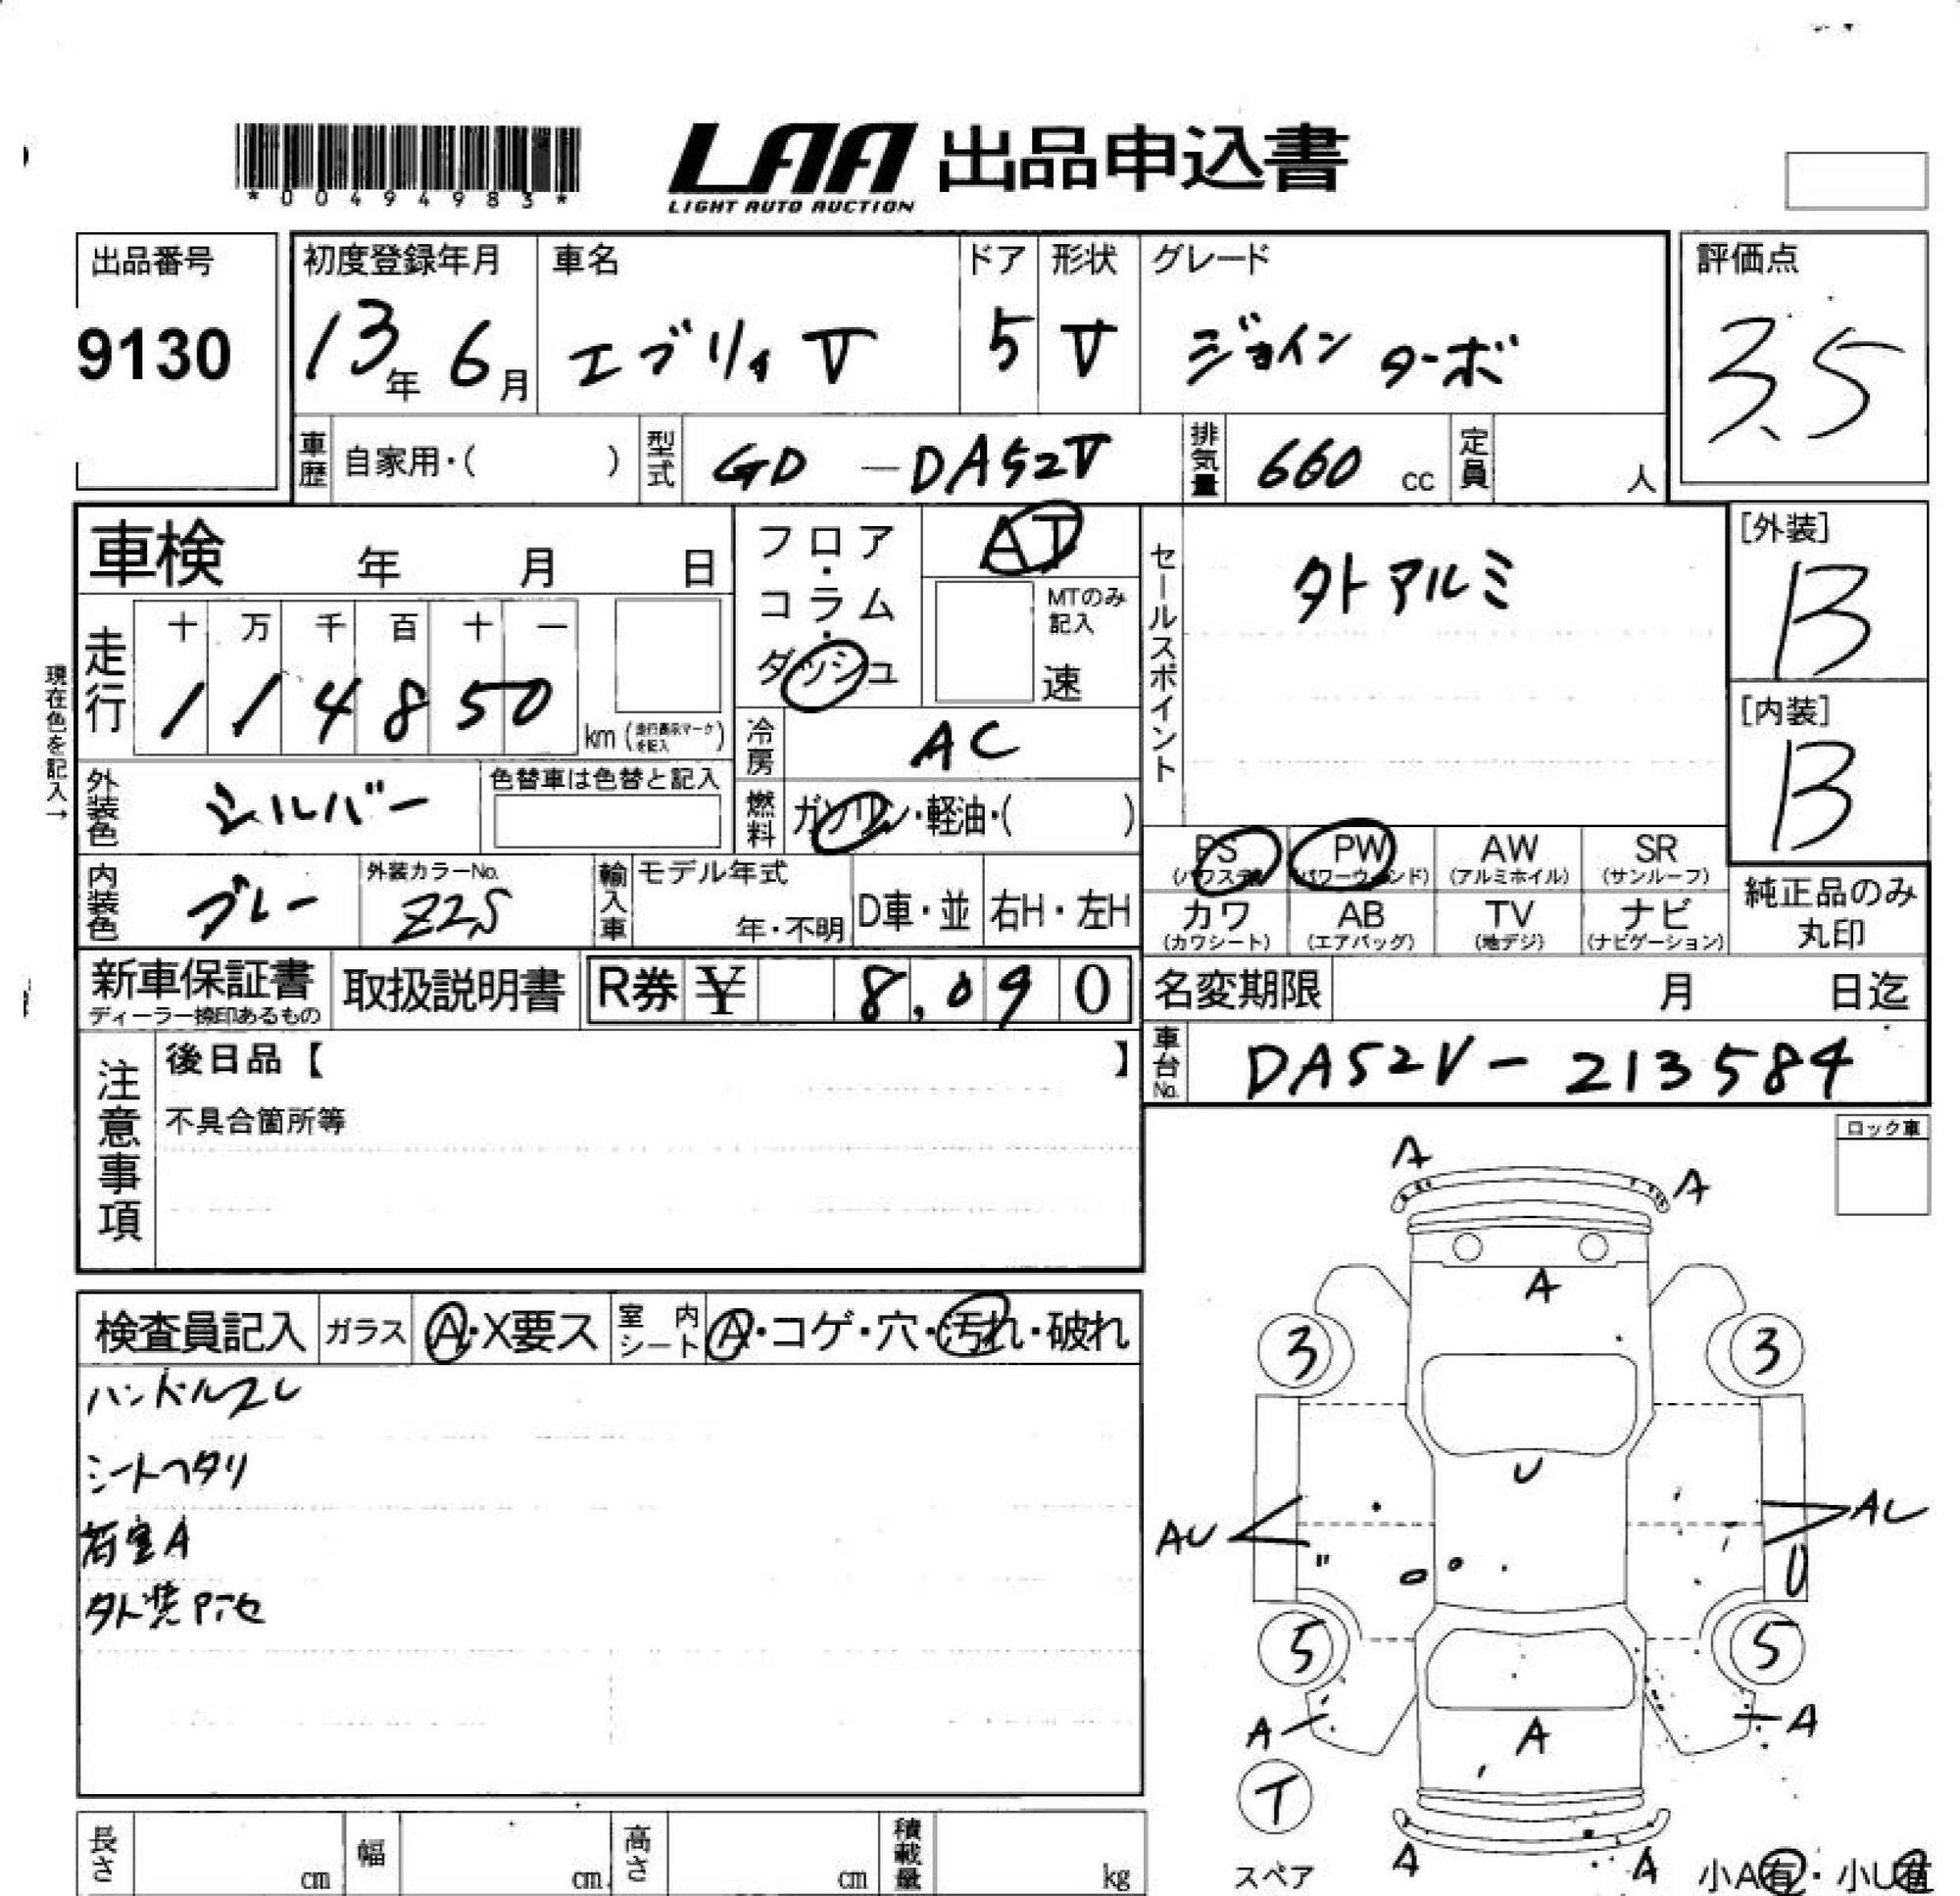 *00494983*
LAA 出品申込書
LIGHT AUTO AUCTION
出品番号
9130
初度登録年月
13年 6月
車名
エブリィ V
ドア
5
形状
V
グレード
ジョイン ターボ
評価点
3.5
車歴 自家用・( )
型式 GD -DA52V
排気量 660 cc
定員 人
車検 年 月 日
フロア・コラム・ダッシュ
AT
MTのみ記入
速
セールスポイント
外アルミ
[外装]
B
[内装]
B
現在色を記入→
走行 十 万 千 百 十 一
1 1 4 8 5 0
km (走行表示マークを記入)
冷房 AC
外装色 シルバー
色替車は色替と記入
燃料 ガソリン・軽油・( )
内装色 グレー
外装カラーNo.
Z2S
輸入車 モデル年式
年・不明
D車・並
右H・左H
PS (パワステ)
PW (パワーウィンド)
AW (アルミホイル)
SR (サンルーフ)
カワ (カワシート)
AB (エアバッグ)
TV (地デジ)
ナビ (ナビゲーション)
純正品のみ
丸印
新車保証書
ディーラー捺印あるもの
取扱説明書
R券 ¥ 8,090
名変期限 月 日迄
車台No. DA52V-213584
注意事項
後日品【 】
不具合箇所等
ロック車
検査員記入
ガラス A・X要ス
室内シート A・コゲ・穴・汚れ・破れ
ハンドルスレ
シートヘタリ
荷室A
A
A
A
3
3
U
AU
U
5
5
A
A
A
T
スペア
A
A
小A有・小U有
長さ cm
幅 cm
高さ cm
積載量 kg